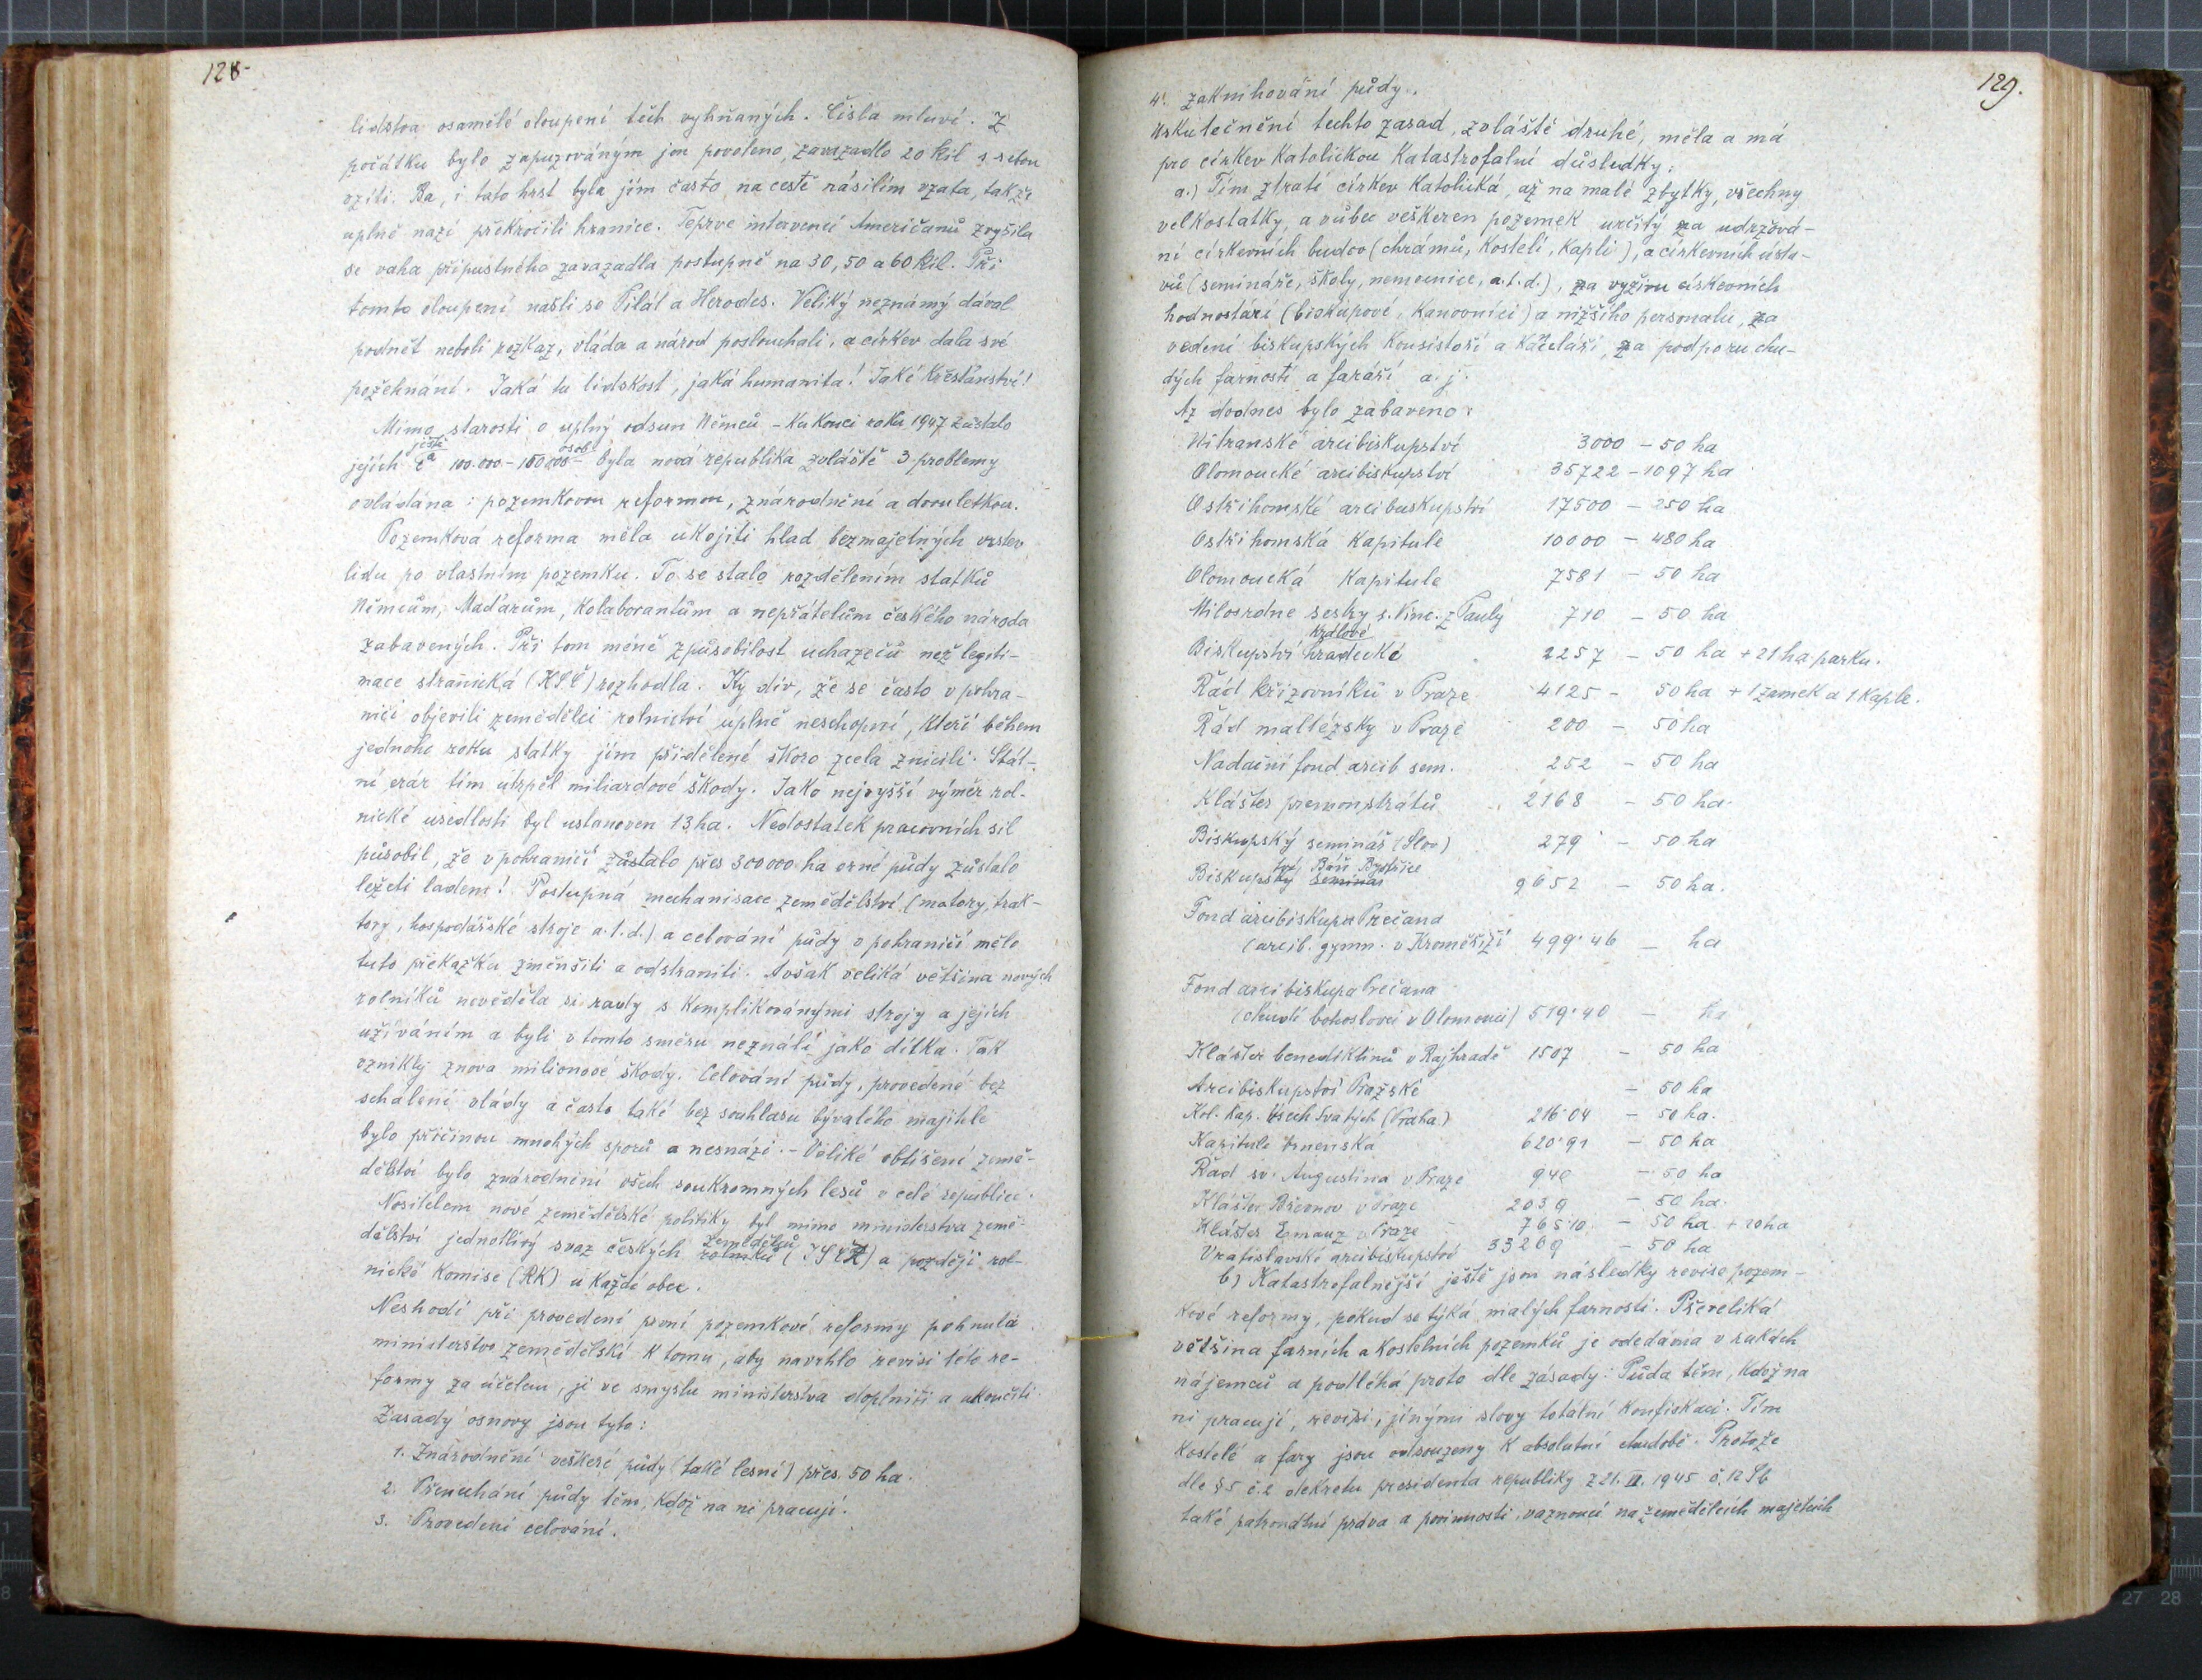 128
lidstva osamělé oloupení těch vyhňaných. Čísla mluví. Z
počátku bylo zapuzovaným jen povoleno, zavazadlo 20 kil s sebou
vzíti. Ba, i tato hrst byla jím často na cestě násilím vzata, takže
uplně nazí překročili hranice. Teprve intervencí Američanů zvyšila
se vaha připustného zavazadla postupně na 30, 50 a 60 kil. Při
tomto oloupení našli se Pilát a Herodes. Veliký neznámý dával
podnět neboli rozkaz, vláda a národ poslouchali, a církev dala své
požehnání. Jaká to lidskost, jaká humanita! Jaké křesťanství!
Mimo starosti o uplný odsun Němců – Ku konci roku 1947 zůstalo
ještě osob
jejích ca 100.000 – 150000 – byla nová republika zvláště 3 problemy
ovládána: pozemkovou reformou, znárodnění a dvouletkou.
Pozemková reforma měla ukojiti hlad bezmajetných vrstev
lidu po vlastním pozemku. To se stalo rozdělením statků
Němcům, Maďarům, Kolaborantům a nepřátelům českého národa
zabavených. Při tom méně způsobilost uchazečů než legiti-
mace stranická (KSČ) rozhodla. Ky div, že se často v pohra-
ničí objevili zemědělci rolnictví úplně neschopní, kteří během
jednoho roku statky jim přidělené skoro zcela zničili. Stát-
ní erar tím utrpěl miliardové škody. Jako nejvyšší výměr rol-
nické usedlosti byl ustanoven 13 ha. Nedostatek pracovních sil
působil, že v pohraničí zůstalo přes 300000 ha orné půdy zůstalo
ležeti ladem! Postupná mechanisace zemědělství (motory, trak-
tory, hospodářské stroje a.t.d.) a celování půdy v pohraničí mělo
tuto překažku zmenšiti a odstraniti. Avšak veliká většina nových
rolníků nevěděla si rady s komplikovanými stroji a jejich
užíváním a byli v tomto směru neználí jako dítka. Tak
vznikly znova milionové škody. Celování půdy, provedené bez
schálení vlády a často také bez souhlasu bývalého majitele
bylo příčinou mnohých sporů a nesnází. – Veliké obtišení země-
dělství bylo znárodnění všech soukromných lesů v celé republice.
Nositelem nové zemědělské politiky byl mimo ministerstva země-
zemědělců
dělství jednotlivý svaz českých rolníků (JSČZ) a později rol-
nické Komise (RK) u každé obce.
Neshodí při provedení první pozemkové reformy pohnula
ministerstvo zemědělské k tomu, aby navrhlo revisi této re-
formy za účelem, ji ve smyslu ministerstva doplniti a ukončiti
Zasady osnovy jsou tyto:
1. Znárodnění veškeré půdy (také lesní) přes 50 ha.
2. Přenechání půdy těm, kdož na ní pracují.
3. Provedení celování.
129.
4. zaknihování půdy.
Uskutečnění techto zasad, zvláště druhé, měla a má
pro církev Katolickou katastrofalní důsledky:
a.) Tím ztratí církev Katolická, až na malé zbytky, všechny
velkostatky, a vůbec veškeren pozemek určitý za udržová-
ní církevních budov (chrámů, kostelí, kaplí), a církevních ústa-
vů (semináře, školy, nemocnice, a.t.d.), za vyživu církevních
hodnostárí (biskupové, kanovníci) a nižšího personalu, za
vedení biskupských konsistoří a kanceláří, za podporu chu-
dých farností a farářů a. j.
Až dodnes bylo zabaveno:
Nitranské arcibiskupství 3000 – 50 ha
Olomoucké arcibiskupství 35722 – 1097 ha
Ostřihomské arcibuskupství 17500 – 250 ha
Ostřihomská Kapitule 10000 – 480 ha
Olomoucká Kapitule 7581 – 50 ha
Milosrdne sestry s. Vinc. z Pauly 710 – 50 ha
Králové
Biskupství hradecké 2257 – 50 ha + 21 ha parku.
Řád křižovníků v Praze 4125 – 50 ha + 1 zamek a 1 kaple.
Řád maltézsky v Praze 200 – 50 ha
Nadační fond arcib sem. 252 – 50 ha
Klášter premonstrátů 2168 – 50 ha
Biskupský seminář (Slov) 279 – 50 ha
tví Báň Bystřice
Biskupský seminár 9652 – 50 ha.
Fond arcibiskupa Prečana
(arcib. gymn. v Kroměříži 499·46 – ha
Fond arcibiskupa Prečana
(chudí bohoslovci v Olomouci) 519·40 – ha
Klášter benediktinů v Rajhradě 1507 – 50 ha
Arcibiskupství Pražské – 50 ha
Kol. kap. všech Svatých (Praha) 216·04 – 50 ha.
Kapitule brnenská 620·91 – 50 ha
Řád sv. Augustina v Praze 940 – 50 ha
Klášter Břevnov v Praze 2039 – 50 ha.
Klášter Emauz v Praze 765·10 – 50 ha + 20 ha
Vratislavské arcibiskupství 33209 – 50 ha
b) Katastrofalnější ještě jsou následky revise pozem-
kové reformy, pokud se týká malých farnosti. Převeliká
většina farních a kostelních pozemků je odedávna v rukách
nájemců a podléhá proto dle zásady: Půda těm, kdož na
ni pracují, revizi, jinými slovy totální konfiskaci. Tím
kostelé a fary jsou odsouzeny k absolutní chudobě. Protože
dle § 5 č. 2 dekretu presidenta republiky z 21. VI. 1945 č. 12 Sb
také patronatní práva a povinnosti, vaznoucí na zemědělcích majetcích